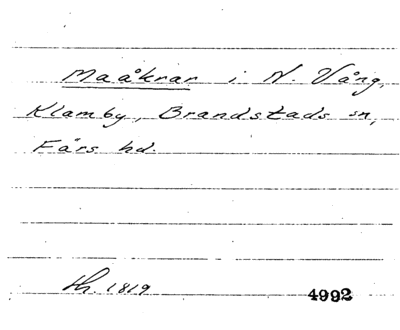 Maåkrar i N. Vång,
Klamby, Brandstads sn,
Färs hd.
sh. 1819 4992